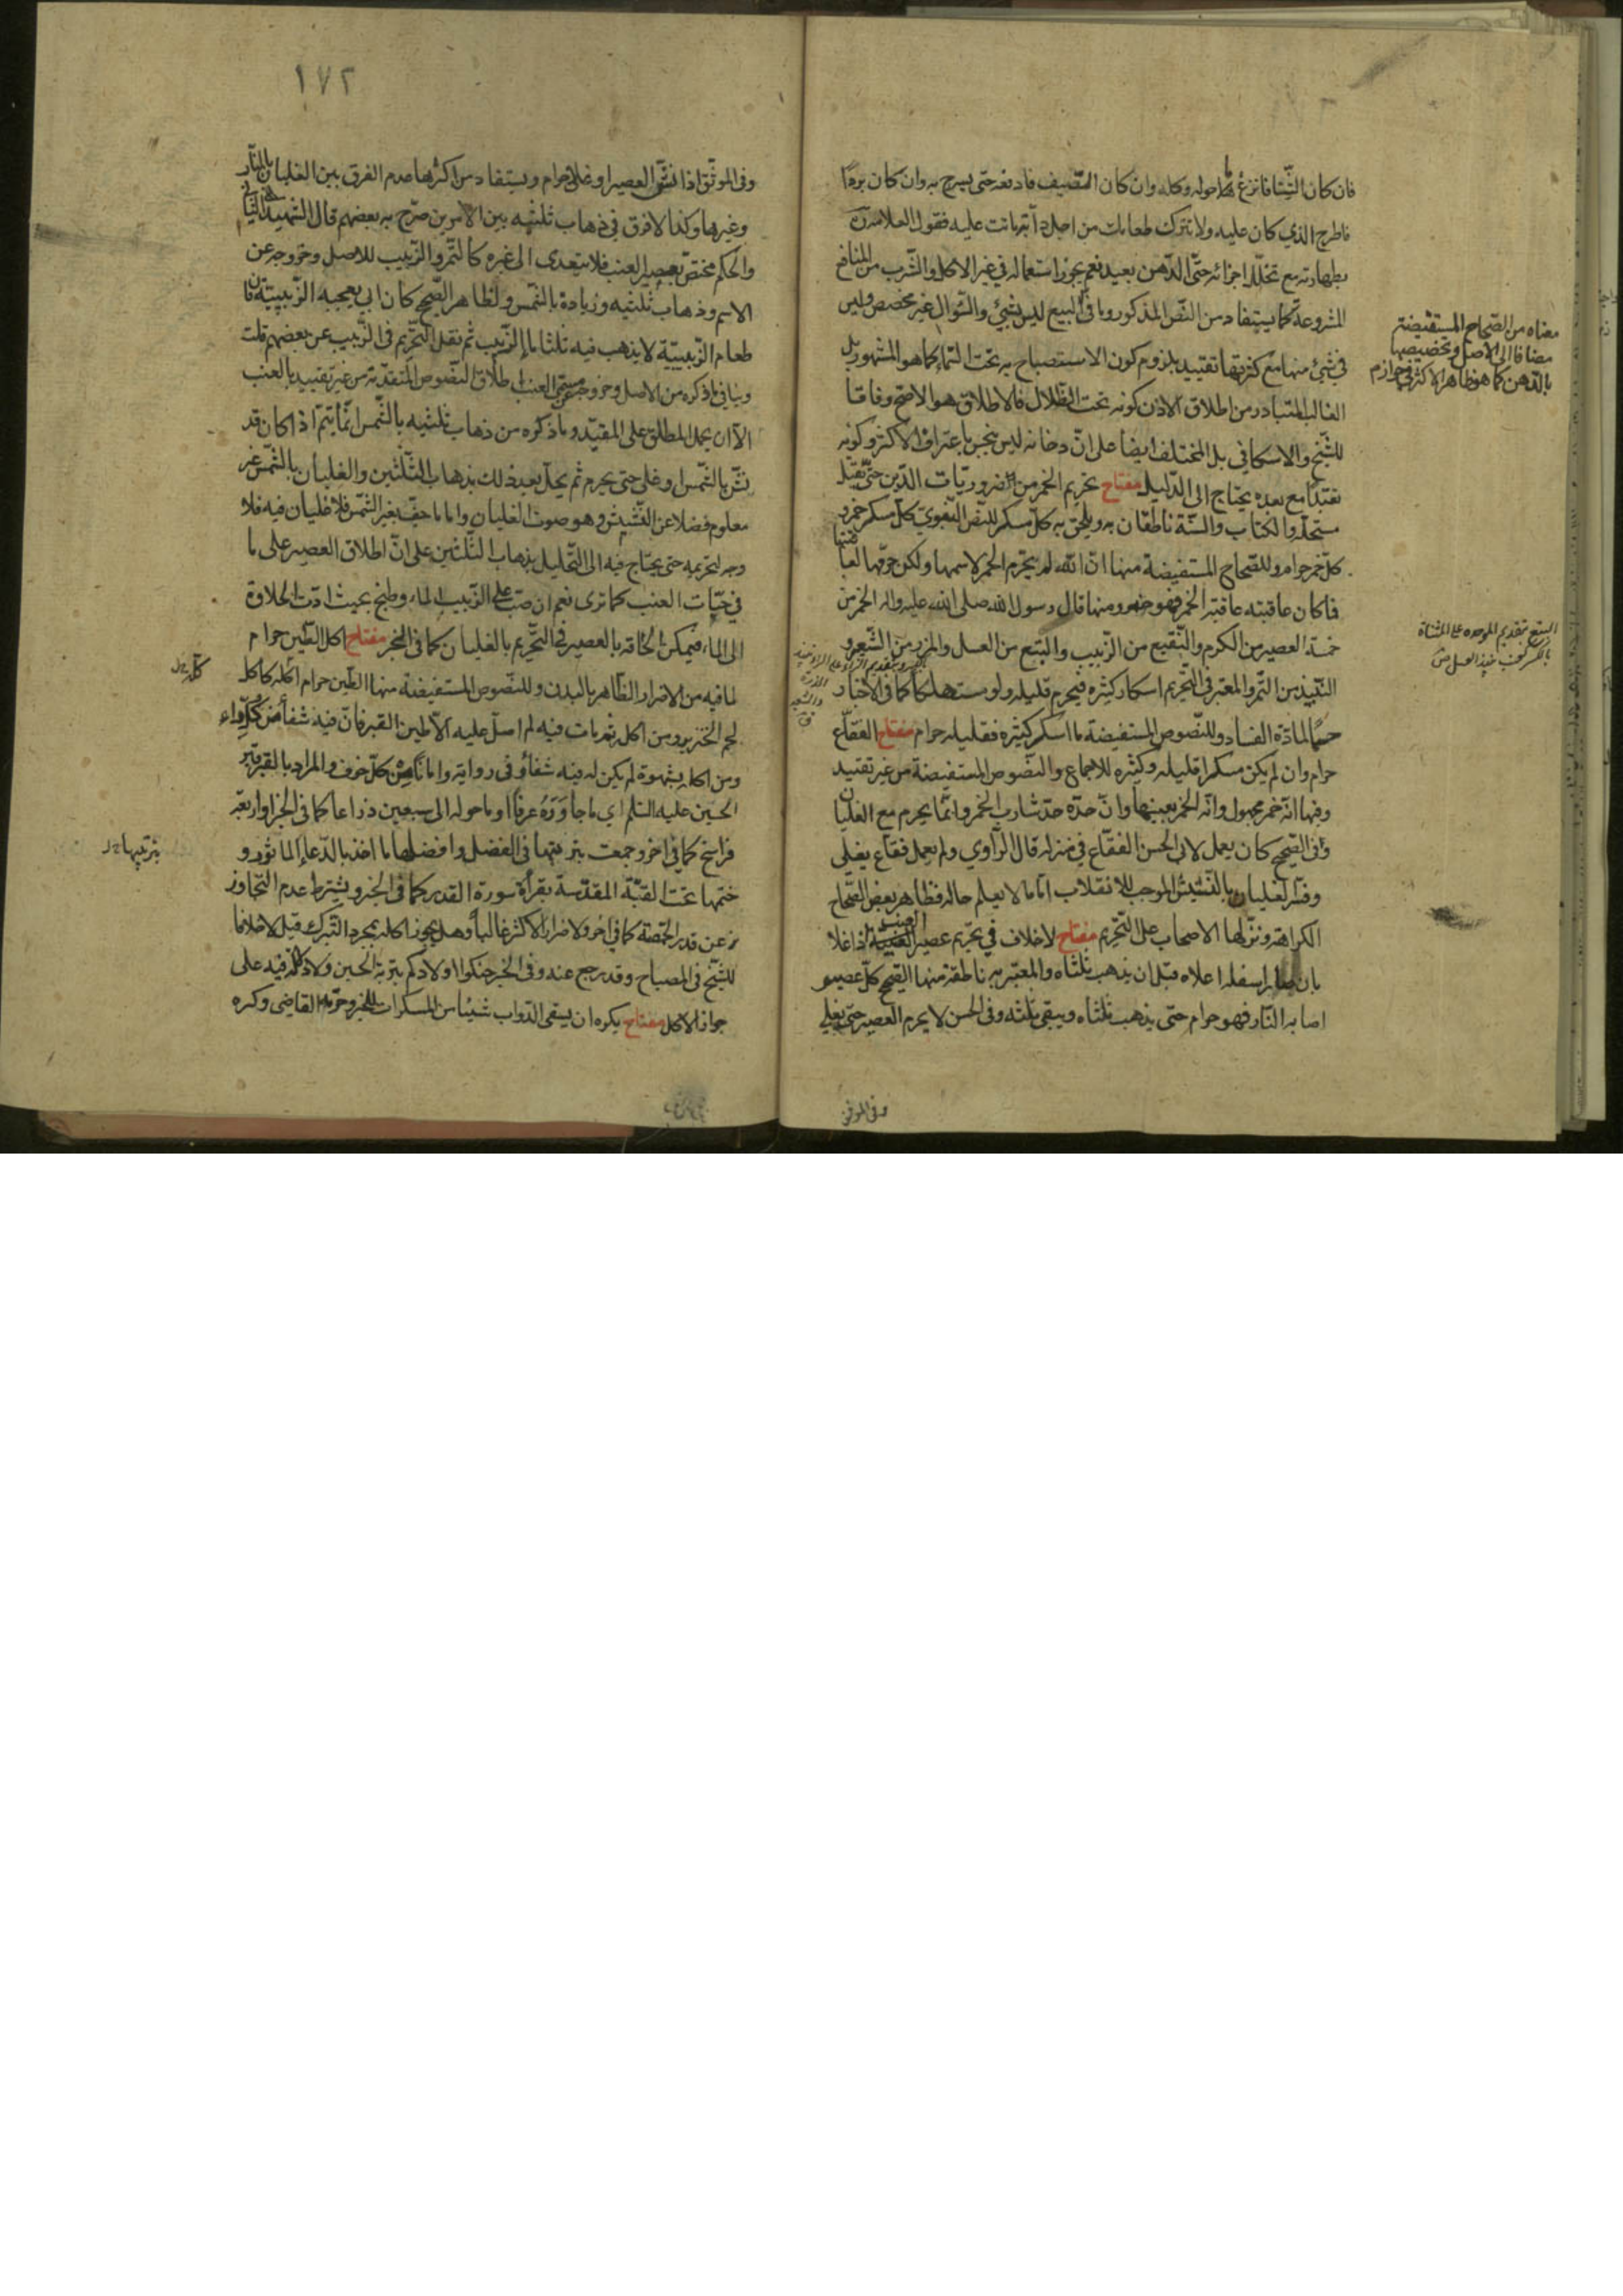 فان كان الشتا فانزع ما حوله وكله وان كان الصيف فادفعه حتى يسرج به وان كان بردا
فاطرح الذي كان عليه ولا تترك طعامك من اجل دابة ماتت عليه فقول العلامة ره
بطهارته مع تخلل اجزائه حتى الدهن بعيد نعم يجوز استعماله في غير الاكل والشرب من المنافع
المشروعة كما يستفاد من النص المذكور وما في البيع ليس بشيء والسؤال غير مخصص وليس
في شيء منها مع كثرتها تقييد بلزوم كون الاستصباح به تحت السماء كما هو المشهور بل
الغالب المتبادر من اطلاق الاذن كونه تحت الظلال فالاطلاق هو الاصح وفاقا
للشيخ والاسكافي بل المختلف ايضا على ان دخانه ليس بنجس باعتراف الاكثر وكونه
تعبدا مع بعده يحتاج الى الدليل مفتاح تحريم الخمر من ضروريات الدين حتى يقتل
مستحله والكتاب والسنة ناطقان به ويلحق به كل مسكر للنص النبوي كل مسكر خمر و
كل خمر حرام وللصحاح المستفيضة منها ان الله لم يحرم الخمر لاسمها ولكن حرمها لعاقبتها
فما كان عاقبته عاقبة الخمر فهو خمر ومنها قال رسول الله صلى الله عليه واله الخمر من
خمسة العصير من الكرم والنقيع من الزبيب والبتع من العسل والمزر من الشعير و
النبيذ من التمر والمعتبر في التحريم اسكار كثيره فيحرم قليله ولو مستهلكا كما في الاخبار
حسما لمادة الفساد وللنصوص المستفيضة ما اسكر كثيره فقليله حرام مفتاح الفقاع
حرام وان لم يكن مسكرا قليله وكثيره للاجماع والنصوص المستفيضة من غير تقييد
وفيها انه خمر مجهول وانه الخمر بعينها وان حده حد شارب الخمر وانما يحرم مع الغليان
وفي الصحيح كان يعمل لابي الحسن الفقاع في منزله قال الراوي ولم يعمل فقاع يغلي
وفسر الغليان بالنشيش الموجب للانقلاب اما ما لا يعلم حاله فظاهر بعض الصحاح
الكراهة ونزلها الاصحاب على التحريم مفتاح لا خلاف في تحريم عصير العنب اذا غلا
بان صار اسفله اعلاه قبل ان يذهب ثلثاه والمعتبرة به ناطقة منها الصحيح كل عصير
اصابه النار فهو حرام حتى يذهب ثلثاه ويبقى ثلثه وفي الحسن لا يحرم العصير حتى يغلي
وفي الموثق
معناه من الصحاح المستفيضة
مضافا الى الاصل وتخصيصها
بالدهن كما هو ظاهر الاكثر
البتع بتقديم الموحدة على المثناة
بالكسر نبيذ العسل
١٧٢
وفي الموثق اذا نش العصير او غلى حرام ويستفاد من اكثرها عدم الفرق بين الغليان بالنار
وغيرها وكذا لا فرق في ذهاب ثلثيه بين الامرين صرح به بعضهم قال الشهيد الثاني
والحكم مختص بعصير العنب فلا يتعدى الى غيره كالتمر والزبيب للاصل وخروجه عن
الاسم وذهاب ثلثيه وزيادة بالشمس ولظاهر الصحيح كان ابي يعجبه الزبيبية فان
طعام الزبيبية لا يذهب فيه ثلثا ماء الزبيب ثم نقل التحريم في الزبيب عن بعضهم قلت
وينافي ما ذكره من الاصل وخروجه عن مسمى العنب اطلاق النصوص المتقدمة من غير تقييد بالعنب
الا ان يحمل المطلق على المقيد وما ذكره من ذهاب ثلثيه بالشمس انما يتم اذا كان قد
نش بالشمس او غلى حتى يحرم ثم يحل بعد ذلك بذهاب الثلثين والغليان بالشمس غير
معلوم فضلا عن النشيش وهو صوت الغليان واما ما جف بغير الشمس فلا غليان فيه فلا
وجه لتحريمه حتى يحتاج فيه الى التحليل بذهاب الثلثين على ان اطلاق العصير على ما
في حبات العنب كما ترى نعم ان صب على الزبيب الماء وطبخ بحيث ادت الحلاوة
الى الماء فيمكن الحاقه بالعصير في التحريم بالغليان كما في الخبر مفتاح اكل الطين حرام
لما فيه من الاضرار الظاهر بالبدن وللنصوص المستفيضة منها الطين حرام اكله كاكل
لحم الخنزير ومن اكله ثم مات فيه لم اصل عليه الا طين القبر فان فيه شفاء من كل داء
ومن اكله بشهوة لم يكن له فيه شفاء وفي رواية وامانا من كل خوف والمراد بالقبر قبر
الحسين عليه السلم اي ما جاوره عرفا او ما حوله الى سبعين ذراعا كما في الخبر او اربعة
فراسخ كما في اخر وجمعت بترتبها في الفضل وافضلها ما اخذ بالدعاء الماثور و
ختمها تحت القبة المقدسة بقرأة سورة القدر كما في الخبر ويشترط عدم التجاوز
عن قدر الحمصة كما في اخر ولاضرار الاكثر غالبا وهل يجوز اكله بمجرد التبرك قيل لا خلافا
للشيخ في المصباح وقد رجع عنه وفي الخبر حنكوا اولادكم بتربة الحسين ولا دلالة فيه على
جواز الاكل مفتاح يكره ان يسقى الدواب شيئا من المسكرات للخبر وحرمه القاضي وكره
بترتيبها خ ل